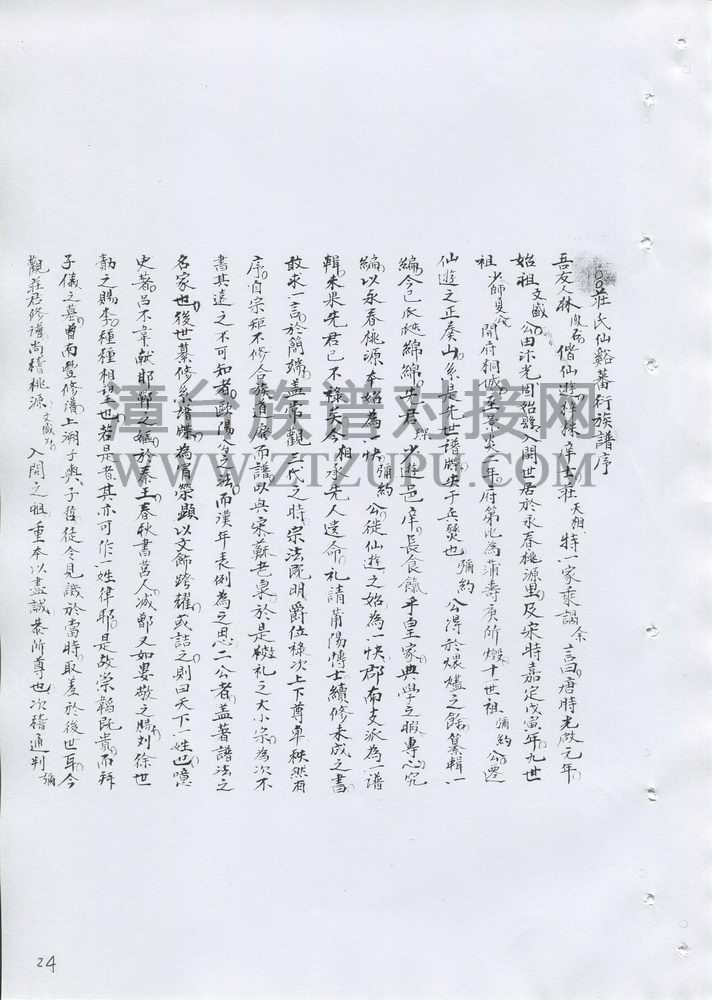 莊氏仙谿蕃衍族譜序
吾友人林 偕仙遊庠掾辛士莊天相持一家乘謁余言曰唐時光啟元年
始祖文盛公由汴光固始縣入閩世居於永春桃源里及宋時嘉定戊寅年九世
祖少師夏公開府桐城至景炎二年府第屺為蒲壽庚所燬十世祖彌約公遷
仙遊之正奏山系是先世譜牒失于兵燹也彌約公得於煨燼之餘纂輯一
編今已瓜瓞綿綿先君少遊邑庠長食餼乎皇家典學之暇專心究
編以永春桃源奉始為一帙彌約公徙仙遊之始為一帙郡南支派為一譜
輯未果先君已不祿矣今相承先人遺命礼請莆陽博士續修未成之書
敢求一言於簡端蓋常觀三代之時宗法既明爵位祿次上下尊卑秩然有
序自宗矩不修合族道廢而譜以興宋蘇老泉於是礼之大小宗為次不
書其遠之不可知者歐陽公之法而漢年表例為之思二公者蓋著譜法之
名家也後世纂修系譜牒為眉榮顯以文飾跨耀或詰之則曰天下一姓也噫
史著呂不韋献邯鄲之姬於秦王春秋書莒人滅鄫又如婁敬之賜劉徐世
勣之賜李種種相望也若是者其亦可作一姓律耶是故崇韜既貴而拜
子儀之墓曾南豐修譜上溯子輿子哲徒令見譏於當時取羞於後世耳今
觀莊君修譜尚稽桃源文盛公入閩之祖重本以盡誠恭所尊也次稽通判彌
漳台族谱对接网
WWW.ZTZUPU.COM
24